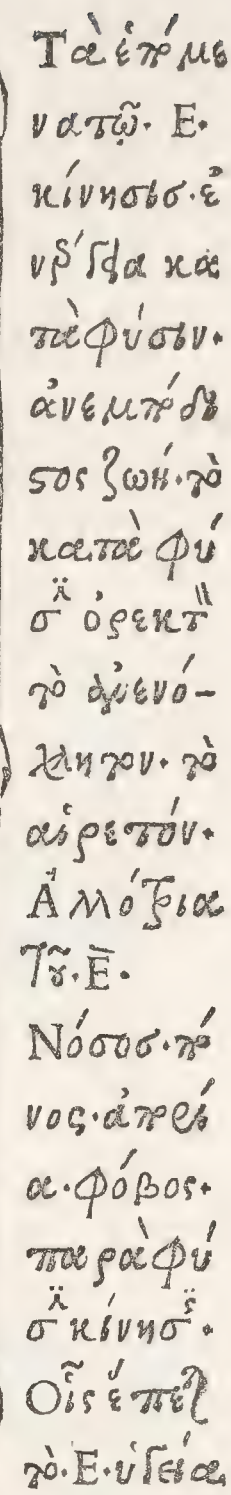 Τὰ ἑπόμε
να τῷ. Ε.
κίνησις. ἐ
κα
φύσιν.
ἀνεμπόδι
στος ζωή. τὸ
κατὰ φύ
σιν ὀρεκτ
τὸ ἀνενό-
χλητον. τὸ
αἱρετόν.
Ἀλλότρια
τοῦ. Ε.
Νόσος. πό
νος. ἀπορί
α. φόβος.
παρὰ φύ
σιν κίνησις.
Οἷς ἕπε
τὸ. Ε. ὑγεία